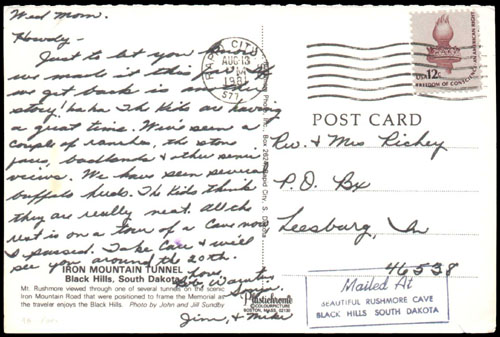 Wed Morn.
Howdy -
Just to let you know
we made it this far. If
we get back is another
story! haha The Kids are having
a great time. We've seen a
couple of ranches, the stone
faces, badlands & other scenic
views. We have seen several
buffalo herds. The Kids think
they are really neat. All the
rest is on a tour of a Cave now
I passed. Take Care & we'll
see you around the 20th.
Love,
Bob
Jim, & Mike
IRON MOUNTAIN TUNNEL
Black Hills, South Dakota
Mt. Rushmore viewed through one of several tunnels on the scenic
Iron Mountain Road that were positioned to frame the Memorial as
the traveler enjoys the Black Hills. Photo by John and Jill Sundby
Plastichrome
COLOURPICTURE
BOSTON, MASS. 02130
RAPID CITY
AUG 13
PM
1981
577
USA 12c
FREEDOM OF CONSCIENCE-AN AMERICAN RIGHT
POST CARD
Rev. & Mrs Richey
P.O. Bx
Leesburg, In
46538
Mailed At
BEAUTIFUL RUSHMORE CAVE
BLACK HILLS SOUTH DAKOTA